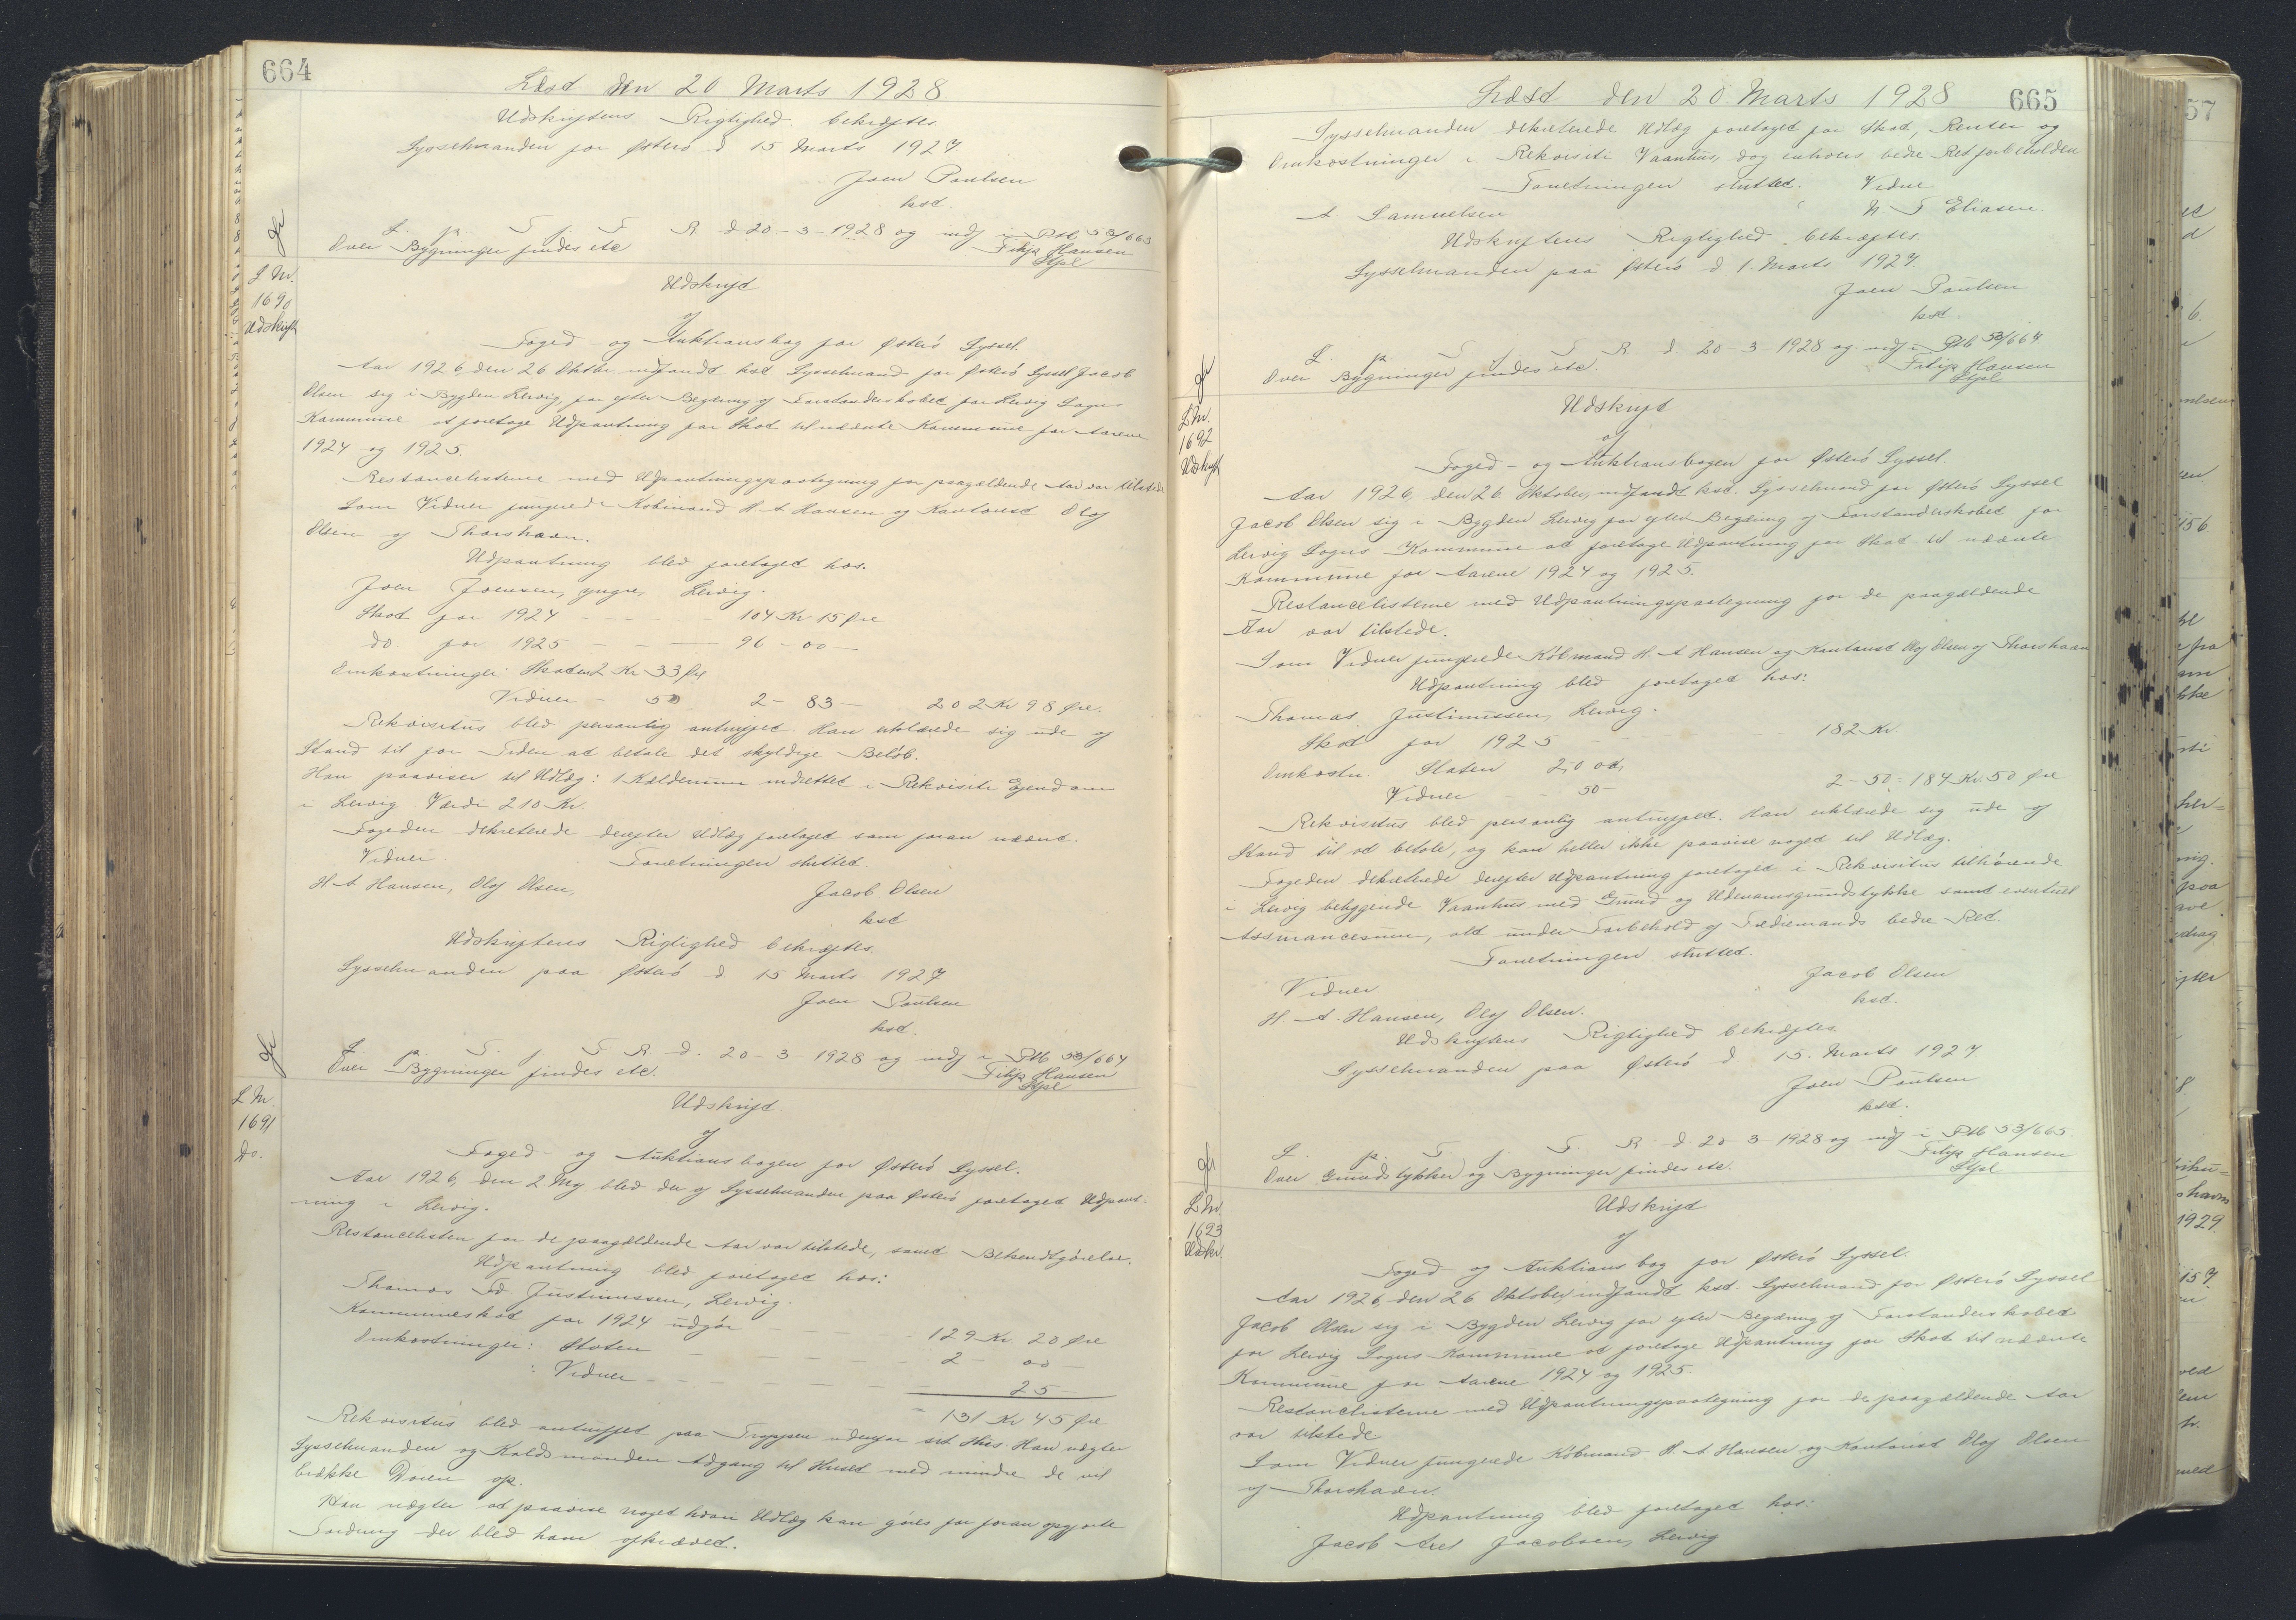 664
Læst den 20 Marts 1928.
Udskriftens Rigtighed bekræftes.
Sysselmanden for Østerö d 15 Marts 1927.
Joen Poulsen
kst.
L. p. T. f. F. R. d. 20-3-1928 og indf i Ptb 53/663
Over Bygninger findes etc
Filip Hansen
Stpl
L Nr.
1690
Udskrift
Udskrift
af
Foged- og Auktionsbog for Østerö Syssel.
Aar 1926, den 26 Oktbr. indfandt kst. Sysselmand for Østerö Syssel Jacob
Olsen sig i Bygden Lervig, for efter Begæring af Forstanderskabet for Lervig Sogns
Kommune at foretage Udpantning for Skat til nævnte Kommune for Aarene
1924 og 1925.
Restancelisterne med Udpantningspaategning for paagældende Aar var tilstede
Som Vidner fungerede Købmand H. A Hansen og Kontorist Olaf
Olsen af Thorshavn.
Udpantning bled foretaget hos.
Joen Joensen, yngre, Lervig.
Skat for 1924 - - - - 104 Kr 15 Øre
do. for 1925 - - - 96 - 00 -
Omkostninger: Skaten 2 Kr 33 Øre
Vidner - 50 2 - 83 - 202 Kr 98 Øre.
Rekvisitus blev personlig antruffet. Han erklærede sig ude af
Stand til for Tiden at betale det skyldige Beløb.
Han paaviser til Udlæg: 1 Kælderrum indrettet i Rekvisiti Ejendom
i Lervig. Værdi 210 Kr.
Fogeden dekreterede derefter Udlæg foretaget som foran nævnt.
Vidner
Forretningen sluttet.
H A Hansen, Olaf Olsen,
Jacob Olsen
kst
Udskriftens Rigtighed bekræftes.
Sysselmanden paa Østerö d. 15 Marts 1927
Joen Poulsen
kst.
L. p. T. f. F. R. d. 20-3-1928 og indf i Ptb 53/664
Over Bygninger findes etc.
Filip Hansen
Stpl
L Nr.
1691
Do.
Udskrift
af
Foged- og Auktionsbogen for Østerö Syssel.
Aar 1926, den 2. Maj blev der af Sysselmanden paa Østerö foretaget Udpant-
ning i Lervig.
Restancelisten for de paagældende Aar var tilstede, samt Bekendtgørelse.
Udpantning blev foretaget hos:
Thomas Fd. Justinussen, Lervig.
Kommuneskat for 1924 udgør - - 129 Kr 20 Øre
Omkostninger: Staten - - - - 2 - 00 -
" Vidner - - - - - 25 -
= 131 Kr 45 Øre
Rekvisitus blev antruffet paa Trappen udenfor sit Hus. Han nægter
Sysselmanden og Kaldsmanden Adgang til Huset med mindre de vil
brække Døren op.
Han nægter at paavise noget hvori Udlæg kan gøres for foran opgjorte
Fordring der blev ham afkrævet.
665
Læst den 20. Marts 1928
Sysselmanden dekreterede Udlæg foretaget for Skat, Renter og
Omkostninger i Rekvisiti Vaanhus, dog enhvers bedre Ret forbeholden
Forretningen sluttet. Vidne
A Samuelsen
N T Eliasen.
Udskriftens Rigtighed bekræftes.
Sysselmanden paa Østerö d 1. Marts 1927.
Joen Poulsen
kst.
L. p. T. f. F. R. d. 20-3-1928 og indf i Ptb 53/664
Over Bygninger findes etc.
Filip Hansen
Stpl
L Nr.
1692
Udskrift
Udskrift
af
Foged- og Auktionsbogen for Østerö Syssel.
Aar 1926, den 26 Oktober, indfandt kst. Sysselmand for Østerö Syssel
Jacob Olsen sig i Bygden Lervig for efter Begæring af Forstanderskabet for
Lervig Sogns Kommune at foretage Udpantning for Skat til nævnte
Kommune for Aarene 1924 og 1925.
Restancelisterne med Udpantningspaategning for de paagældende
Aar var tilstede.
Som Vidner fungerede Købmand H. A Hansen og Kontorist Olaf Olsen af Thorshavn
Udpantning blev foretaget hos:
Thomas Justinussen, Lervig.
Skat for 1925 - - - - 182 Kr.
Omkostn. Staten 2,00,
Vidner - - 50 - 2-50 : 184 Kr. 50 Øre
Rekvisitus blev personlig antruffet. Han erklærede sig ude af
Stand til at betale, og kan heller ikke paavise noget til Udlæg.
Fogeden dekreterede derefter Udpantning foretaget i Rekvisitus tilhørende
i Lervig beliggende Vaanhus med Grund og Udenomsgrundstykke samt eventuel
Assurancesum, alt under Forbehold af Trediemands bedre Ret.
Forretningen sluttet.
Vidner
Jacob Olsen
kst.
H. A. Hansen, Olaf Olsen.
Udskriftens Rigtighed bekræftes
Sysselmanden paa Østerö d. 15. Marts 1927.
Joen Poulsen
kst.
L. p. T. f. F. R. d. 20-3-1928 og indf i Ptb 53/665.
Over Grundstykker og Bygninger findes etc.
Filip Hansen
Stpl
L Nr.
1693
Udskr.
Udskrift
af
Foged- og Auktionsbog for Østerö Syssel.
Aar 1926, den 26 Oktober, indfandt kst. Sysselmand for Østerö Syssel
Jacob Olsen sig i Bygden Lervig for efter Begæring af Forstanderskabet
for Lervig Sogns Kommune at foretage Udpantning for Skat til nævnte
Kommune for Aarene 1924 og 1925.
Restancelisterne med Udpantningspaategning for de paagældende Aar
var tilstede
Som Vidner fungerede Købmand H. A Hansen og Kontorist Olaf Olsen
af Thorshavn.
Udpantning blev foretaget hos:
Jacob Axel Jacobsen, Lervig